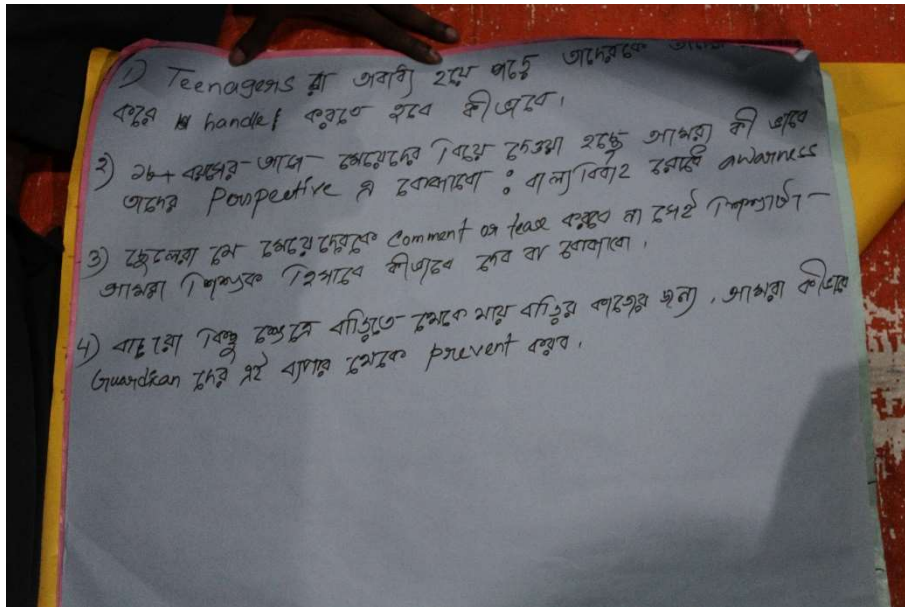 1) Teenagers রা অবাধ্য হয়ে পড়ে তাদেরকে
করে handle করতে হবে কীভাবে।
২) ১৮+ বয়সের আগে মেয়েদের বিয়ে দেওয়া হচ্ছে আমরা কী ভাবে
তাদের Perspective এ বোঝাবো : বাল্যবিবাহ রোধে awarness
3) ছেলেরা যে মেয়েদেরকে Comment or tease করবে না সেই শিক্ষাটা
আমরা শিক্ষক হিসাবে কীভাবে দেব বা বোঝাবো।
4) বাচ্চারা কিছু ক্ষেত্রে বাড়িতে থেকে যায় বাড়ির কাজের জন্য, আমরা কীভাবে
Guardian দের এই ব্যাপার থেকে prevent করব।